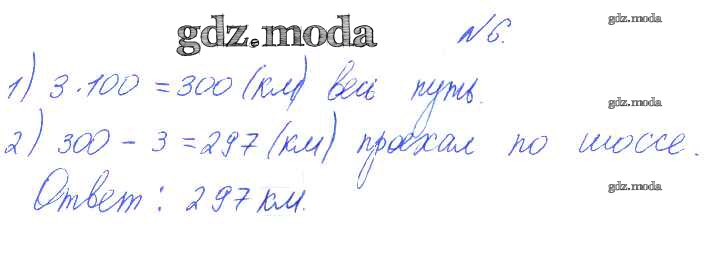 gdz.moda №6. gdz.moda
1) 3 · 100 = 300 (км) весь путь.
gdz.moda
2) 300 - 3 = 297 (км) проехал по шоссе.
Ответ: 297 км. gdz.moda